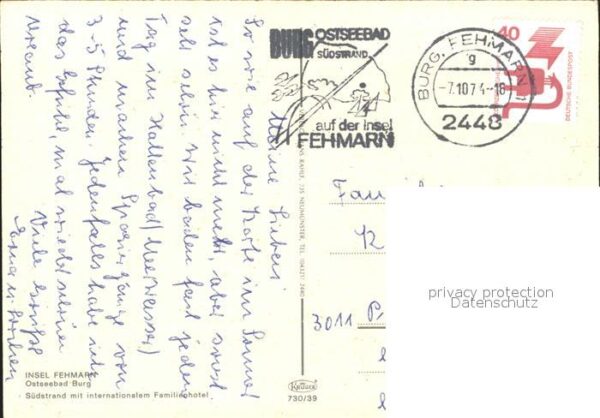 Meine Lieben!
So wie auf der Karte im Sommer
ist es hier nicht mehr, aber sonst
sehr schön. Wir baden fast jeden
Tag im Hallenbad (Meerwasser)
und machen Spaziergänge von
3-5 Stunden. Jedenfalls habe ich
das Gefühl, mal wieder meinen
Urlaub.
Viele Grüße
BURG OSTSEEBAD
SÜDSTRAND
auf der Insel
FEHMARN
BURG, FEHMARN 1
g
-7.10.74-18
2448
40
DEUTSCHE BUNDESPOST
Fam
3011
privacy protection
Datenschutz
INSEL FEHMARN
Ostseebad Burg
Südstrand mit internationalem Familienhotel
Krüger
730/39